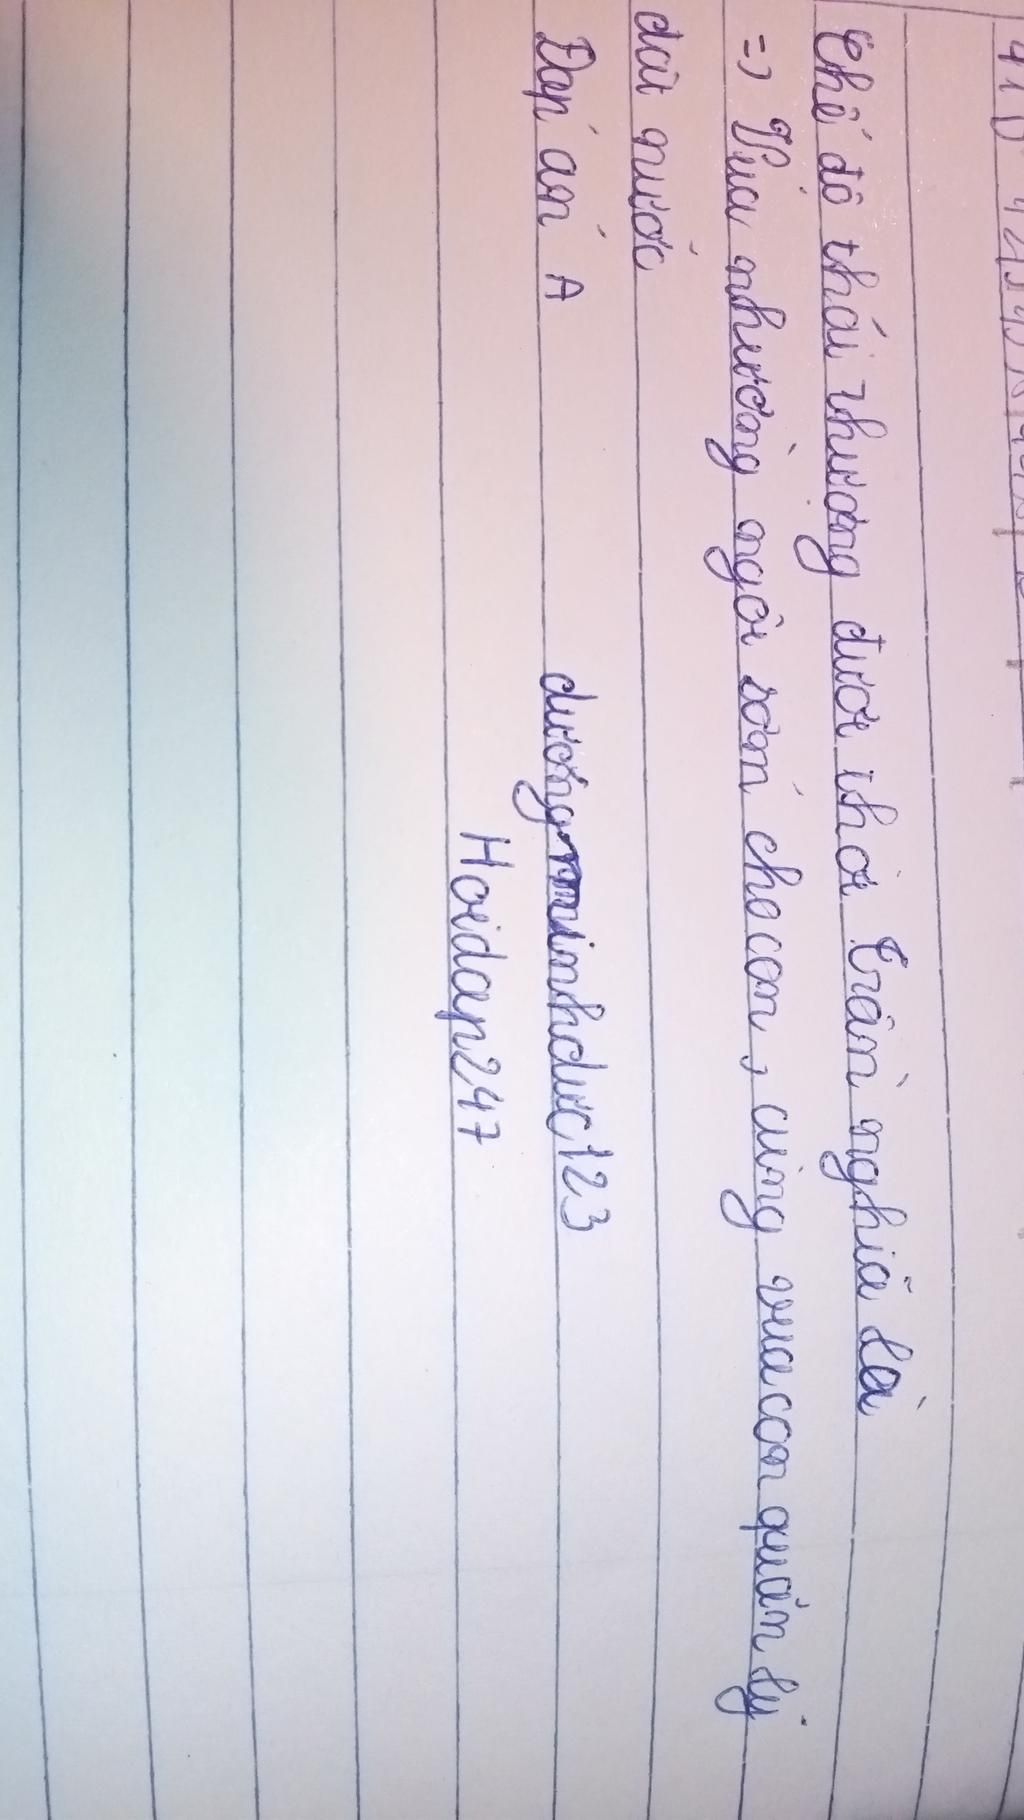 Chế độ thái thượng dưới thời Trần nghĩa là
=> Vua nhường ngôi sớm cho con, cùng vua con quản lý
đất nước
Đáp án A
duongminhduc123
Hoidap247